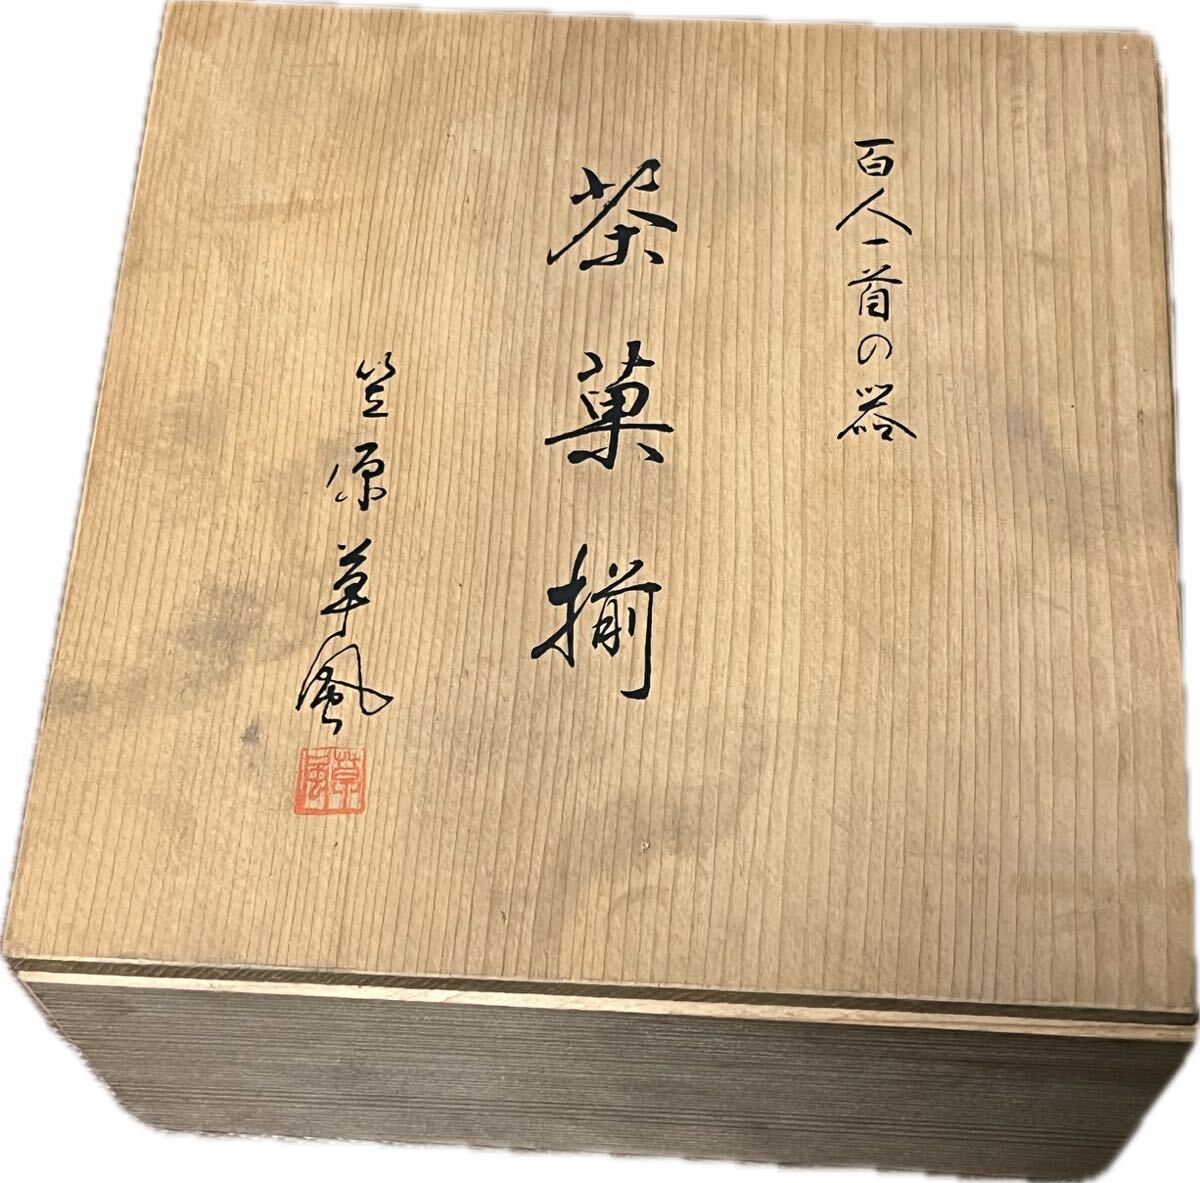 百人一首の器
茶菓揃
笠原草風
草風